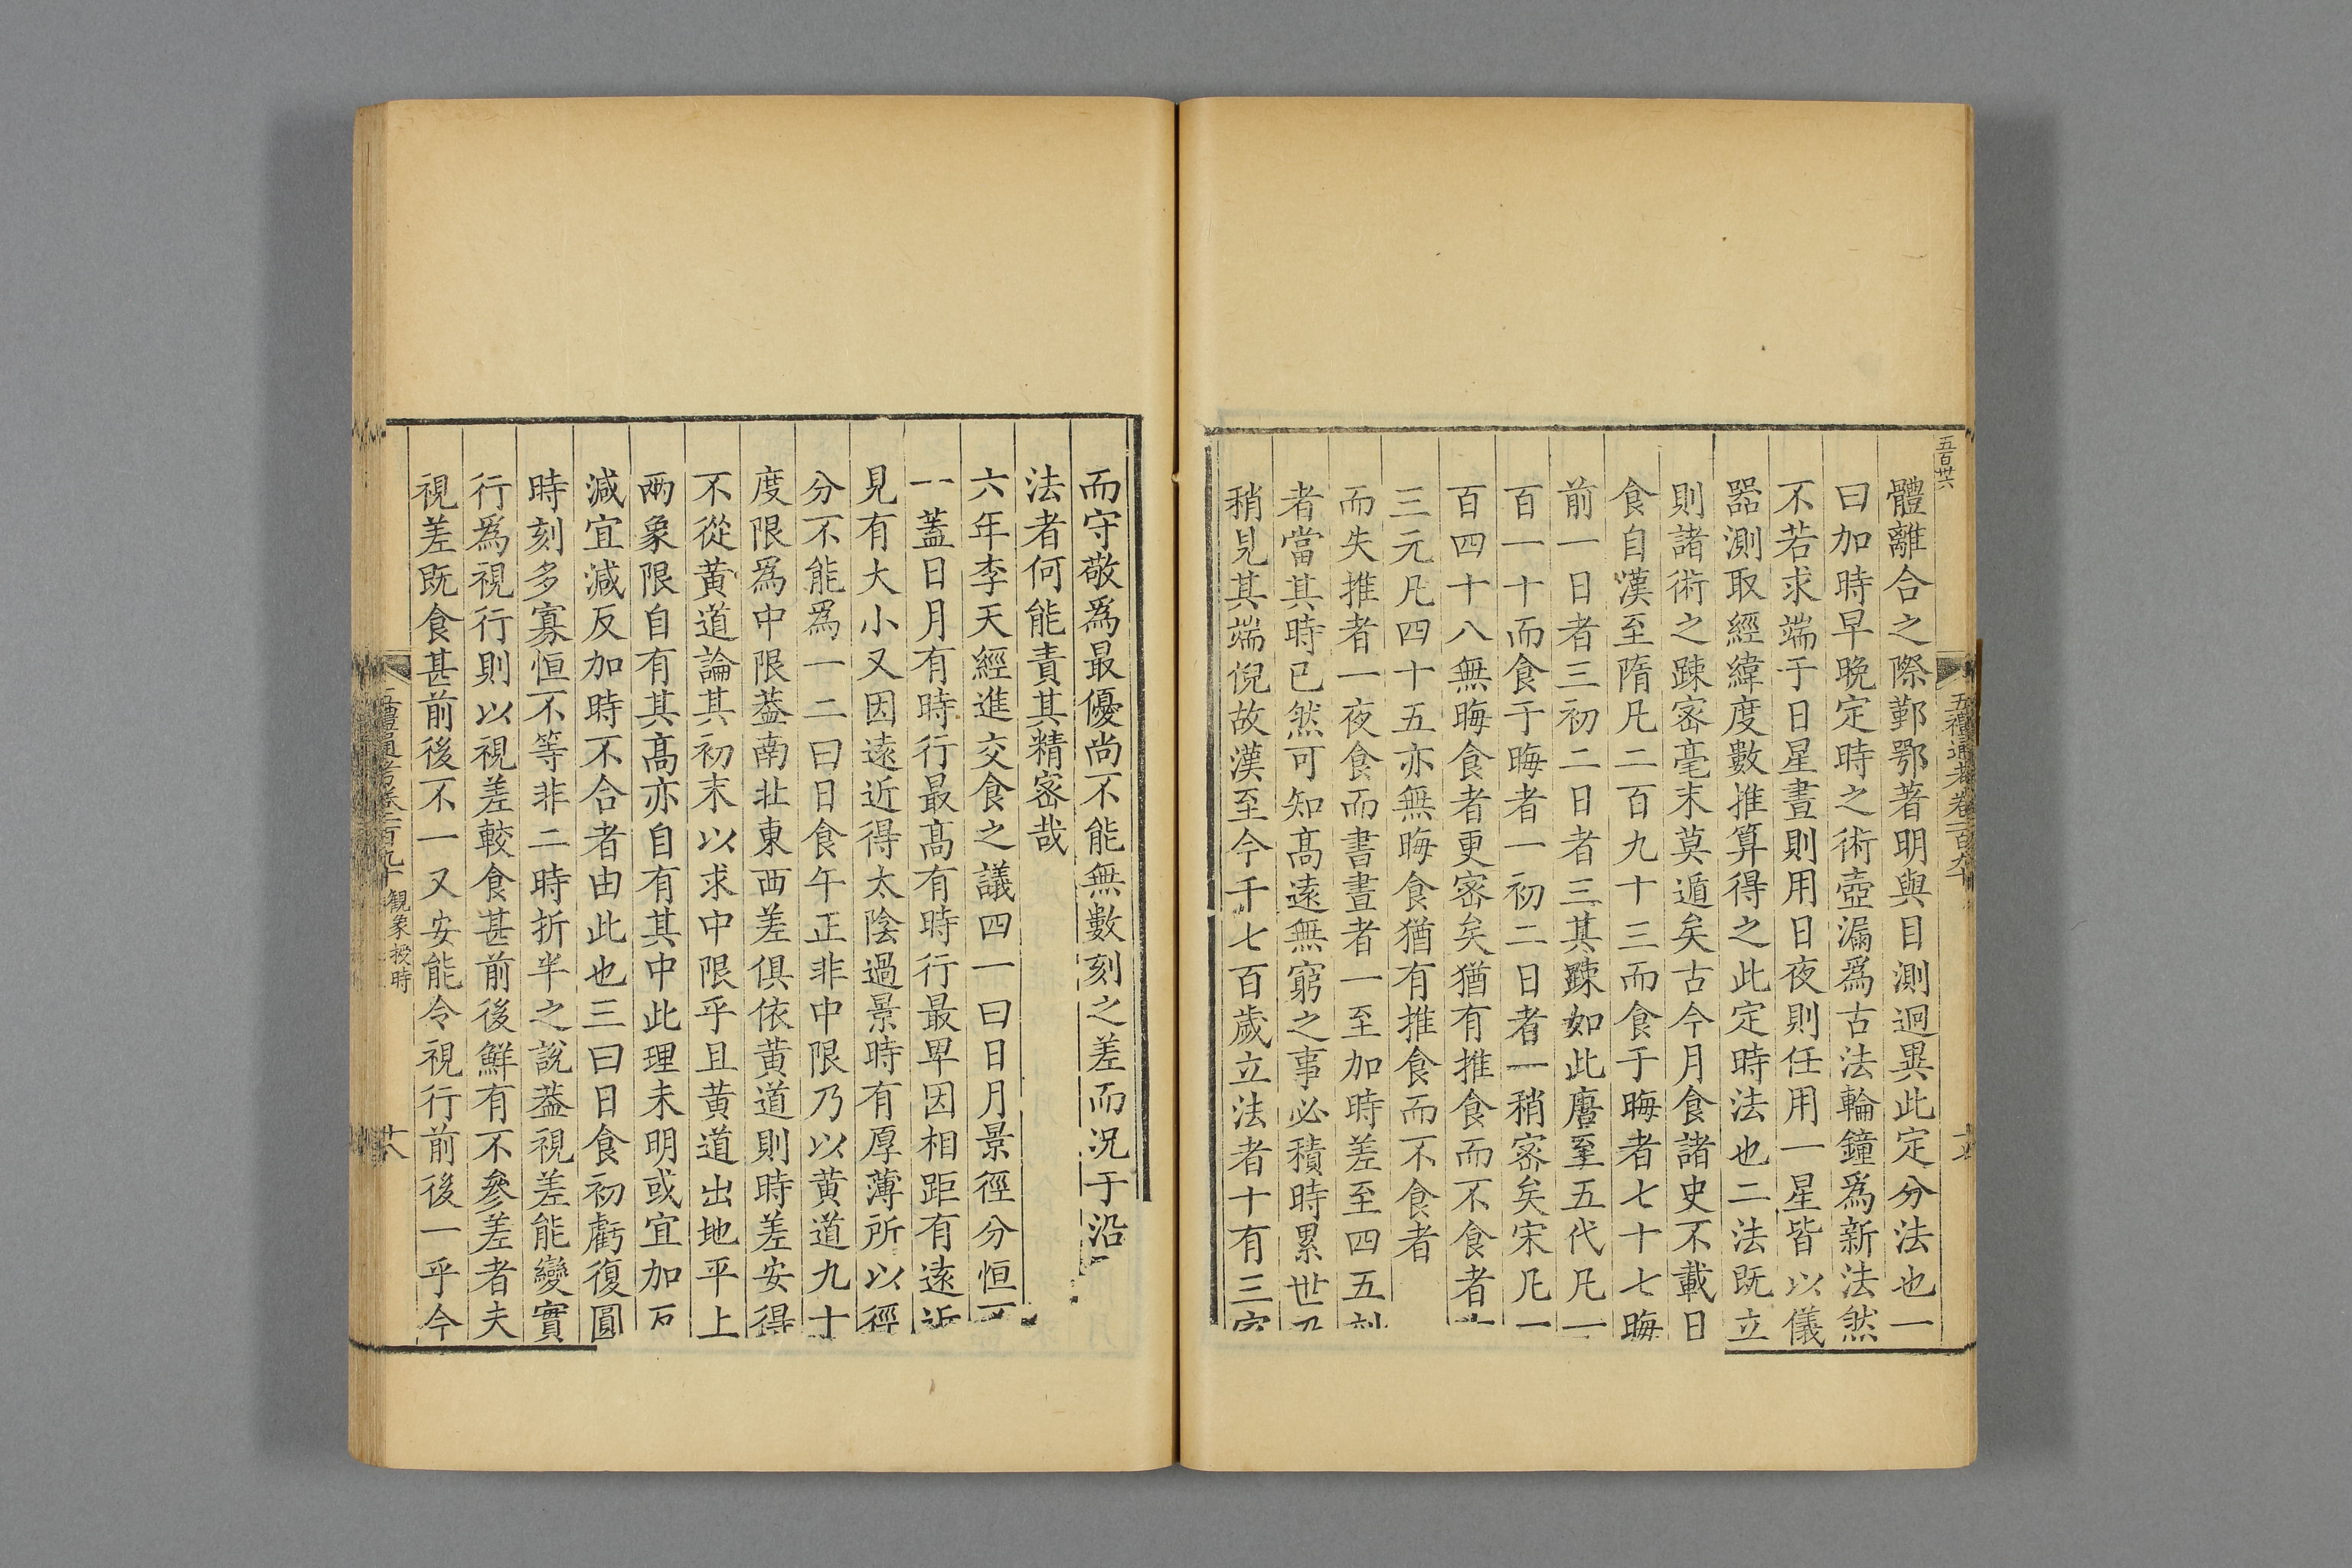 五百卅六
五禮通考卷一百九十
體離合之際鄞鄂著明與目測迥異此定分法也一
曰加時早晚定時之術壺漏爲古法輪鐘爲新法然
不若求端于日星晝則用日夜則任用一星皆以儀
器測取經緯度數推算得之此定時法也二法既立
則諸術之踈宻毫末莫遁矣古今月食諸史不載日
食自漢至隋凡二百九十三而食于晦者七十七晦
前一日者三初二日者三其踈如此唐至五代凡一
百一十而食于晦者一初二日者一稍宻矣宋凡一
百四十八無晦食者更宻矣猶有推食而不食者
三元凡四十五亦無晦食猶有推食而不食者
而失推者一夜食而書晝者一至加時差至四五刻
者當其時已然可知高遠無窮之事必積時累世乃
稍見其端倪故漢至今千七百歲立法者十有三家
而守敬爲最優尚不能無數刻之差而况于沿
法者何能責其精宻哉
六年李天經進交食之議四一曰日月景徑分恒
一蓋日月有時行最高有時行最卑因相距有遠近
見有大小又因遠近得太陰過景時有厚薄所以徑
分不能爲一二曰日食午正非中限乃以黃道九十
度限爲中限葢南北東西差俱依黃道則時差安得
不從黃道論其初末以求中限乎且黃道出地平上
兩象限自有其高亦自有其中此理未明或宜加反
減宜減反加時不合者由此也三曰日食初虧復圓
時刻多寡恒不等非二時折半之說葢視差能變實
行爲視行則以視差較食甚前後鮮有不參差者夫
視差既食甚前後不一又安能令視行前後一乎今
五禮通考卷一百九十 觀象授時